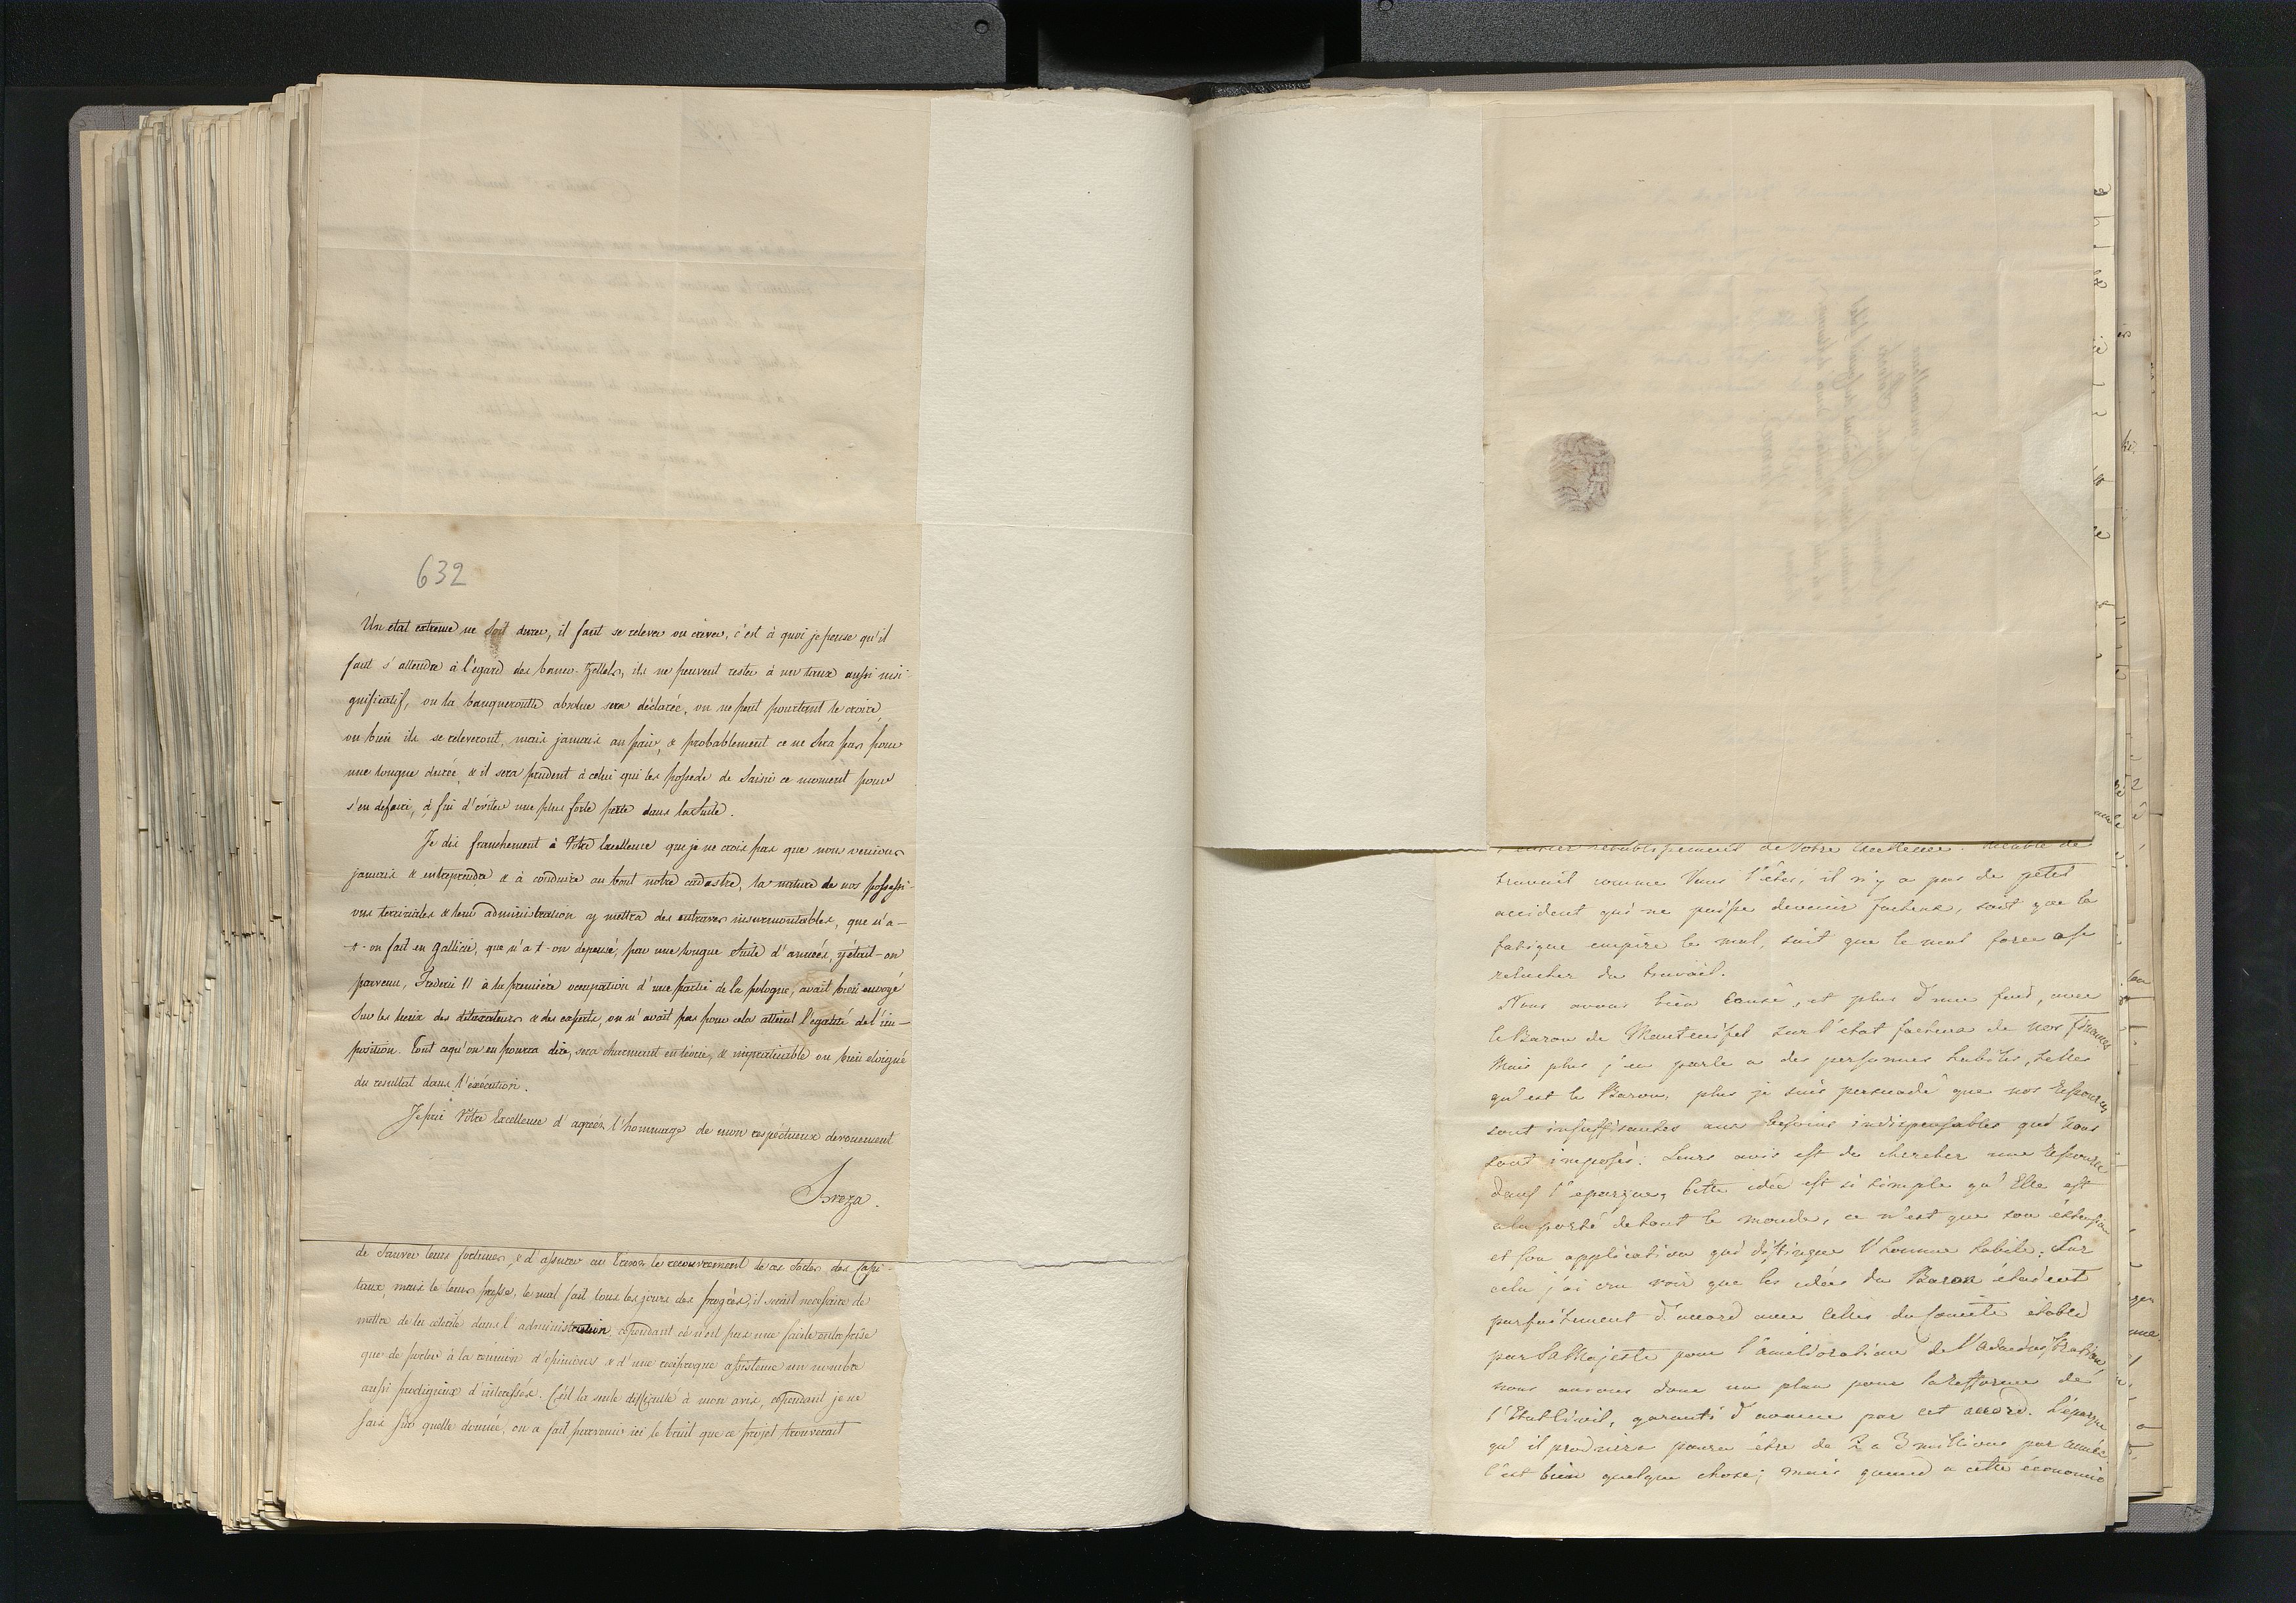 632
Un etat extreme ne doit durer, il faut se relever ou crever, c'est à quoi je pense qu'il
faut s'attendre à l'égard des banco-Zettels, ils ne peuvent rester à un taux aussi insi-
gnificatif, ou la banqueroutte absolue sera déclarée, on ne peut pourtant le croire,
ou bien ils se releveront, mais jamais au pair, & probablement ce ne sera pas pour
une longue durée, & il sera prudent à celui qui les possede de saisir ce moment pour
s'en defaire, à fin d'éviter une plus forte perte dans la suite.
Je dis franchement à Votre Excellence que je ne crois pas que nous venions
jamais & entreprendre & à conduire au bout notre cadastre, la nature de nos possessi-
ons terririales & leur administration y mettra des entraves insurmontables, que n'a-
t-on fait en Gallicie, que n'a t-on depensé, par une longue suite d'années, y était-on
parvenu, Frederic II à la première occupation d'une partie de la pologne, avait bien envoyé
sur les lieux des détaxateurs & des experts, on n'avait pas pour cela atteint l'égalité de l'im-
position. Tout ce qu'on en pourra dire, sera charmant en téorie, & impraticable ou bien eloigné
du resultat dans l'exécution.
Je prie Votre Excellence d'agréer l'hommage de mon respéctueux devouement
Breza.
de sauver leurs fortunes, & d'assurer au Trésor le recouvrement de ces dettes des Capi-
taux, mais le tems presse, le mal fait tous les jours des progrès, il serait necessaire de
mettre de la célérité dans l'administration, cependant ce n'est pas une facile entreprise
que de porter à la reunion d'opinions & d'une reciproque assistance un nombre
aussi prodigieux d'interessés. C'est la seule difficulté à mon avis, cependant je ne
sais sur quelle donnée, on a fait parvenir ici le bruit que ce projet trouverait
rétablissement de Votre Excellence. Accablé de
travail comme Vous l'etes, il n'y a pas de petit
accident qui ne puisse devenir facheux, soit que la
fatigue empire le mal, soit que le mal force a se
relacher du travail.
Nous avons bien Causé, et plus d'une fois, avec
le Baron de Manteuffel sur l'état facheux de nos finances
Mais plus j'en parle a des personnes habiles, telles
qu'est le Baron, plus je suis persuadé que nos Ressources
sont insuffisantes aux besoins indispensables qui nous
sont imposés. Leurs avis est de chercher une Ressource
dans l'epargne, Cette idée est si simple qu'Elle est
a la porté de tout le monde, ce n'est que son éxtension
et son applicatiou qui distingue l'homme habile. Sur
cela j'ai cru voir que les idées du Baron étaient
parfaitement d'accord avec Celles du Comité établi
par Sa Majesté pour l'amélioration de l'administration,
nous aurons donc un plan pour la Refforme de
l'Etat Civil, garanti d'avance par cet accord. L'épargne
qu'il produira pourra être de 2 a 3 millions par année.
C'est bien quelque chose; mais quand a cette économie